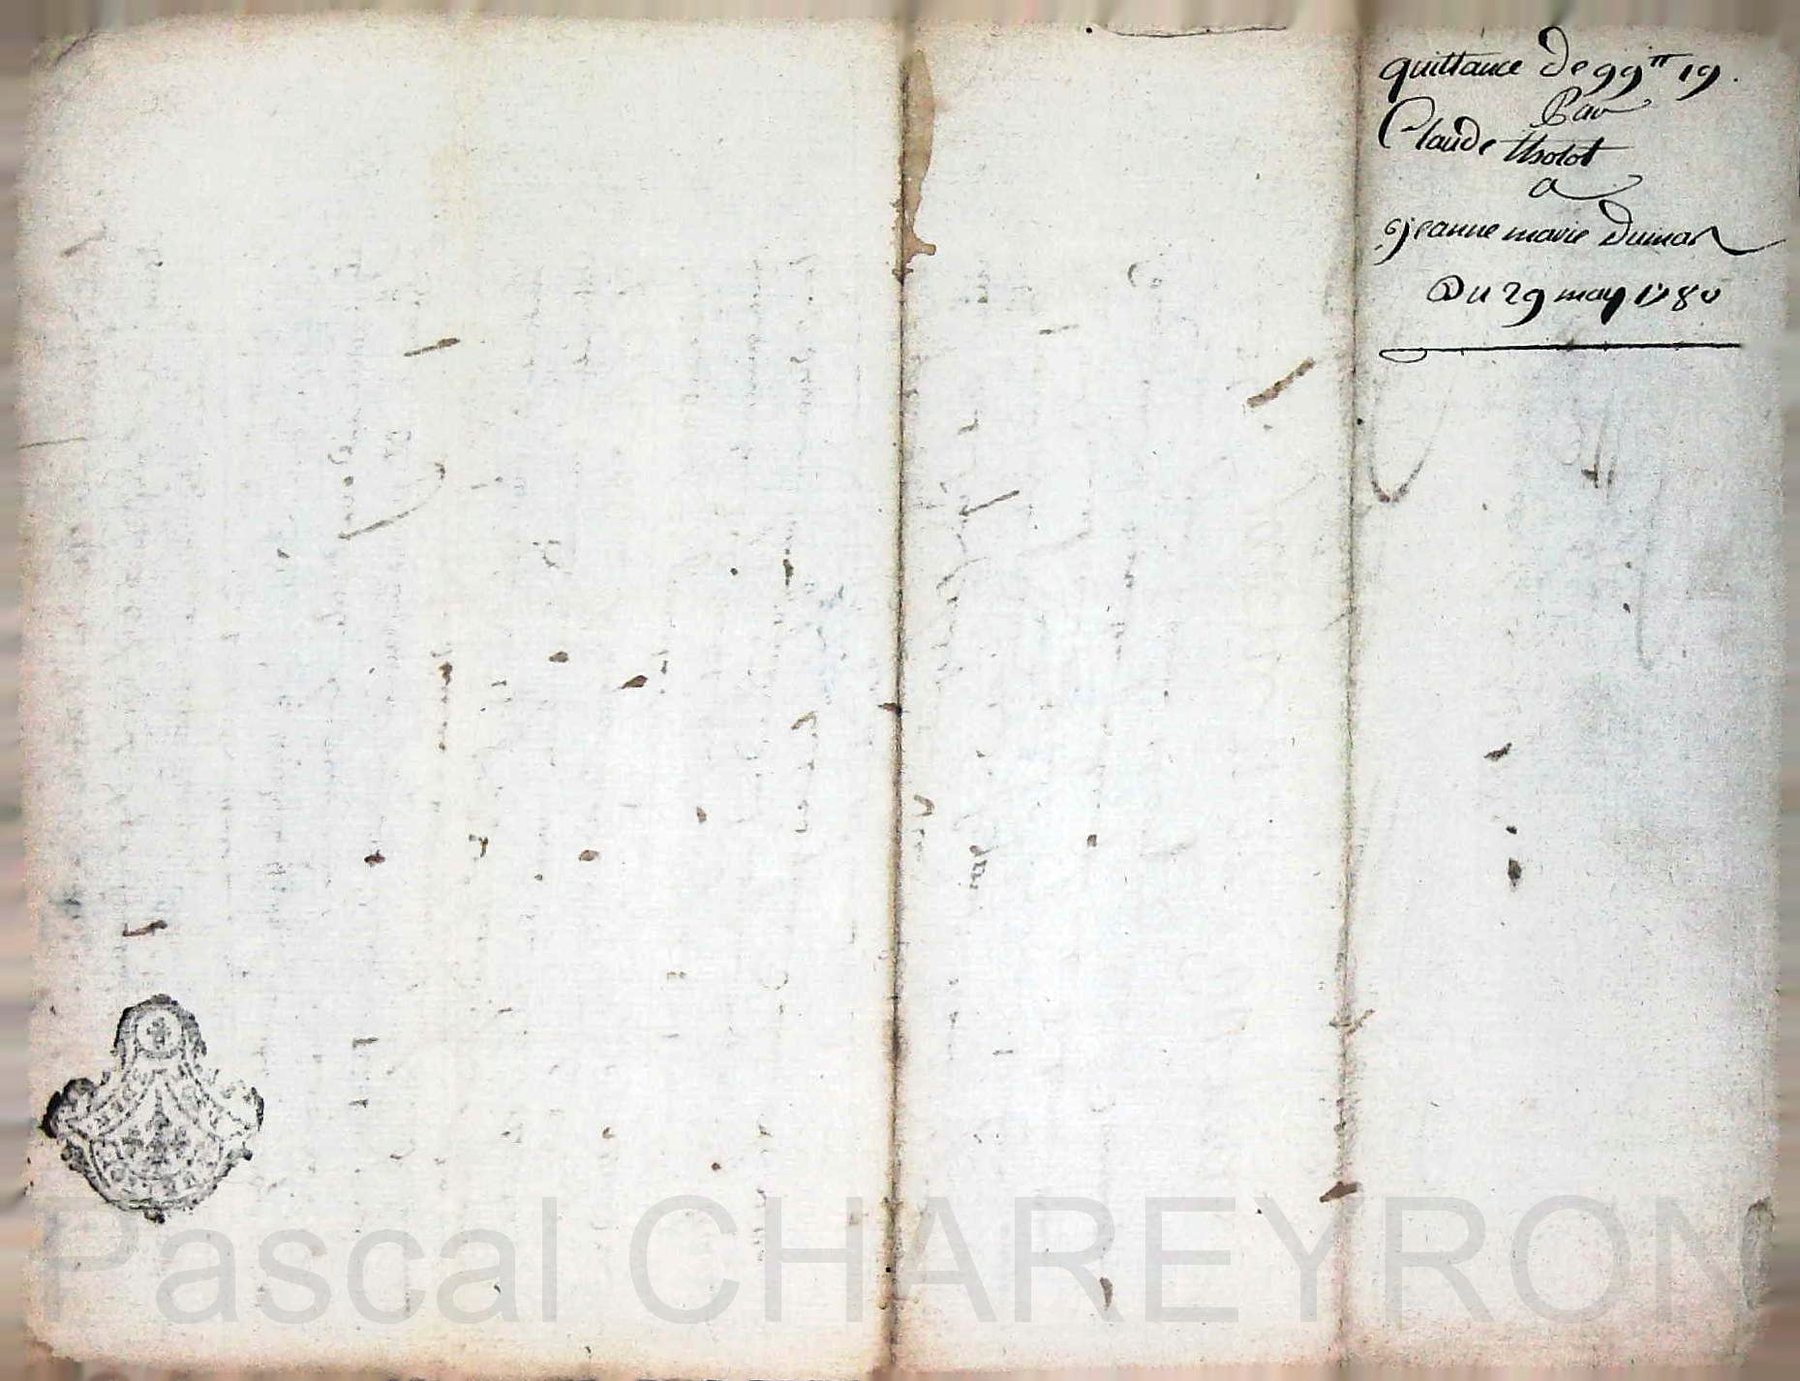 quittance De 99ᵗᵗ 19.
Par
Claude tholot
a
jeanne marie Dumas
Du 29 may 1780
Pascal CHAREYRON